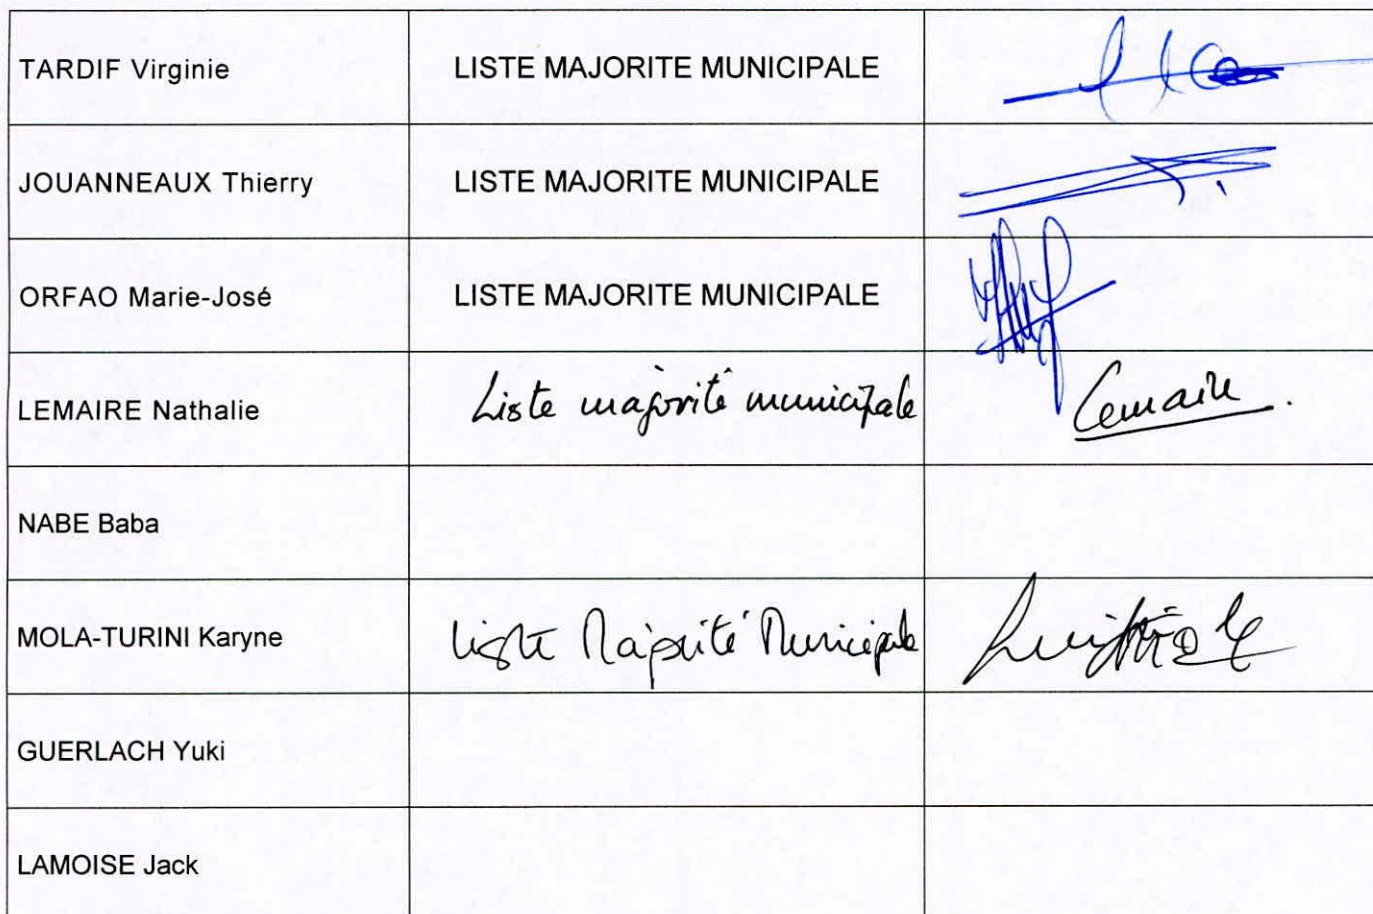 TARDIF Virginie LISTE MAJORITE MUNICIPALE
JOUANNEAUX Thierry LISTE MAJORITE MUNICIPALE
ORFAO Marie-José LISTE MAJORITE MUNICIPALE
LEMAIRE Nathalie Liste majorité municipale Lemaire
NABE Baba
MOLA-TURINI Karyne Liste Majorité Municipale
GUERLACH Yuki
LAMOISE Jack